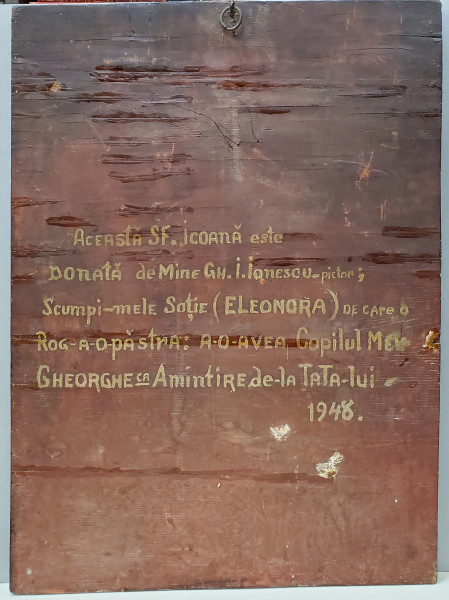 ACEASTĂ SF. ICOANĂ este
DONATĂ de Mine GH. I. Ionescu-pictor;
Scumpi-mele Soție (ELEONORA) DE care o
ROG-A-O PĂSTRA: A-O-AVEA Copilul Meu
GHEORGHE ca Amintire de-la TaTa-lui
1948.